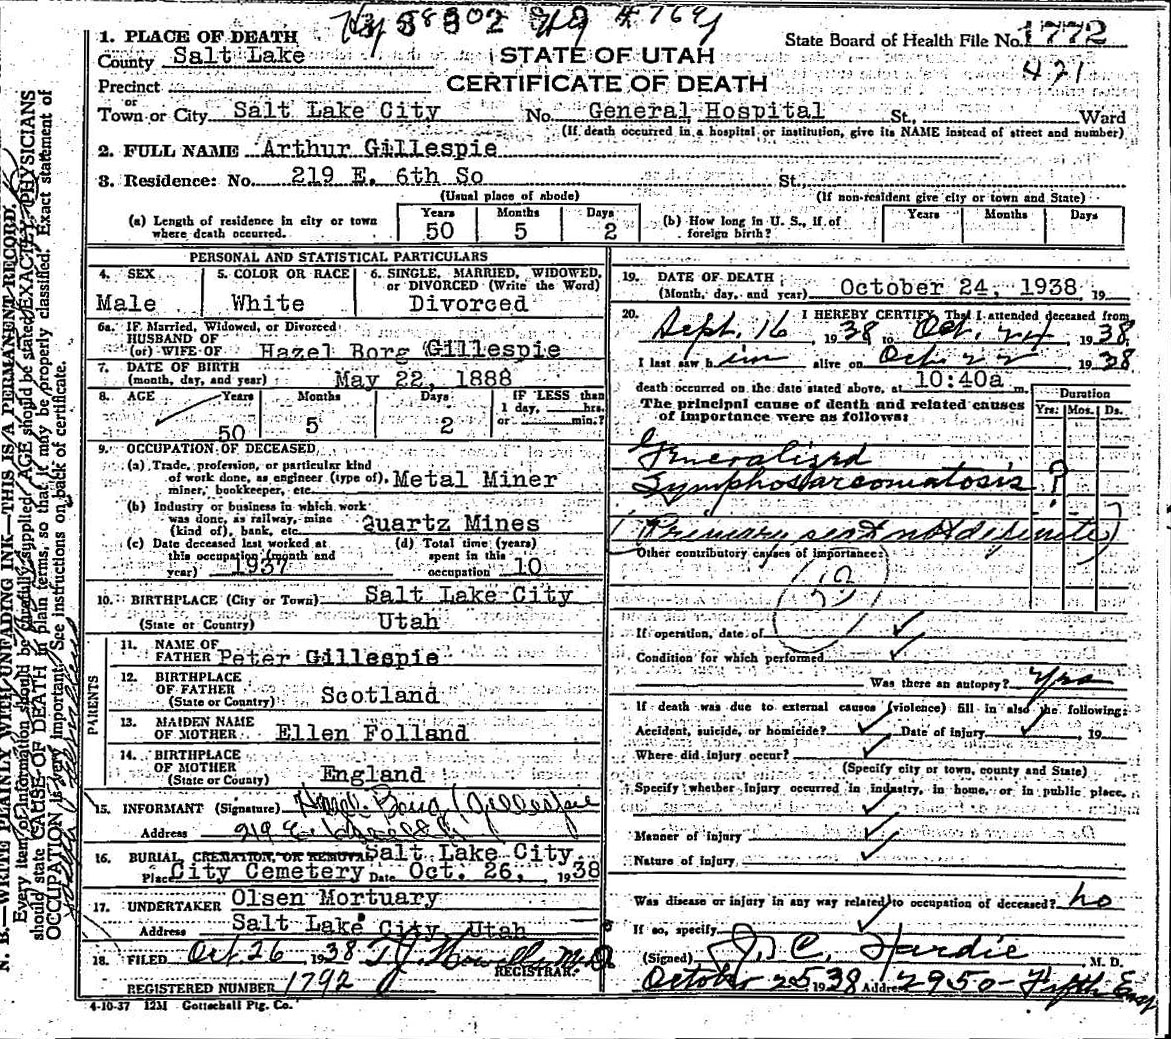 Hy 58302 #769
1. PLACE OF DEATH
State Board of Health File No. 1772
County Salt Lake
STATE OF UTAH
421
Precinct
CERTIFICATE OF DEATH
or
Town or City Salt Lake City No. General Hospital St., Ward
(If death occurred in a hospital or institution, give its NAME instead of street and number)
2. FULL NAME Arthur Gillespie
3. Residence: No. 219 E. 6th So St.
(Usual place of abode) (If non-resident give city or town and State)
(a) Length of residence in city or town where death occurred. Years 50 Months 5 Days 2
(b) How long in U. S., if of foreign birth? Years Months Days
PERSONAL AND STATISTICAL PARTICULARS
4. SEX Male
5. COLOR OR RACE White
6. SINGLE, MARRIED, WIDOWED, or DIVORCED (Write the Word) Divorced
6a. IF Married, Widowed, or Divorced
HUSBAND OF
(or) WIFE OF Hazel Borg Gillespie
7. DATE OF BIRTH
(month, day, and year) May 22, 1888
8. AGE Years 50 Months 5 Days 2 IF LESS than 1 day, hrs. or min.?
9. OCCUPATION OF DECEASED
(a) Trade, profession, or particular kind
of work done, as engineer (type of), Metal Miner
miner, bookkeeper, etc.
(b) Industry or business in which work
was done, as railway, mine Quartz Mines
(kind of), bank, etc.
(c) Date deceased last worked at
this occupation (month and
year) 1937
(d) Total time (years)
spent in this
occupation 10
10. BIRTHPLACE (City or Town) Salt Lake City
(State or Country) Utah
PARENTS
11. NAME OF
FATHER Peter Gillespie
12. BIRTHPLACE
OF FATHER Scotland
(State or Country)
13. MAIDEN NAME
OF MOTHER Ellen Folland
14. BIRTHPLACE
OF MOTHER
(State or Country) England
15. INFORMANT (Signature) Borg Gillespie
Address 219 E.
16. BURIAL, CREMATION, OR REMOVAL Salt Lake City,
Place City Cemetery Date Oct. 26, 1938
17. UNDERTAKER Olsen Mortuary
Address Salt Lake City, Utah
18. FILED Oct. 26 1938 T.J. Howells M.D.
REGISTRAR.
REGISTERED NUMBER 1792
4-10-37 12M Gottschall Ptg. Co.
19. DATE OF DEATH
(Month, day, and year) October 24, 1938 19
20. I HEREBY CERTIFY That I attended deceased from
Sept. 16 1938 to Oct. 24 1938
I last saw him alive on Oct 22 1938
death occurred on the date stated above, at 10:40a m.
The principal cause of death and related causes
of importance were as follows:
Duration
Yrs. Mos. Ds.
Generalized
Lymphosarcomatosis ?
(Primary seat not definite)
Other contributory causes of importance:
If operation, date of
Condition for which performed
Was there an autopsy? Yes
If death was due to external causes (violence) fill in also the following:
Accident, suicide, or homicide? Date of injury 19
Where did injury occur?
(Specify city or town, county and State)
Specify whether injury occurred in industry, in home, or in public place.
Manner of injury
Nature of injury
Was disease or injury in any way related to occupation of deceased? No
If so, specify
(Signed) J. C. Hardie M. D.
October 25 1938 Address 2950- Fifth East
N. B.—WRITE PLAINLY WITH UNFADING INK—THIS IS A PERMANENT RECORD.
Every item of information should be carefully supplied. AGE should be stated EXACTLY. PHYSICIANS
should state CAUSE OF DEATH in plain terms, so that it may be properly classified. Exact statement of
OCCUPATION is very important. See Instructions on back of certificate.